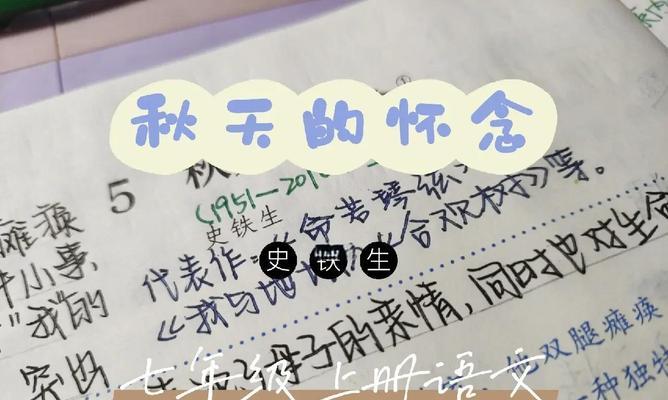 秋天的怀念
瘫痪
5 秋
(1951—201
史铁生
件小事,
代表作:《命若琴弦》
《我与地坛》《合欢树》等。
史铁生
"我"的
突出
母子的亲情,同时也对生命
双腿瘫痪
一种独特
七年级上册语文